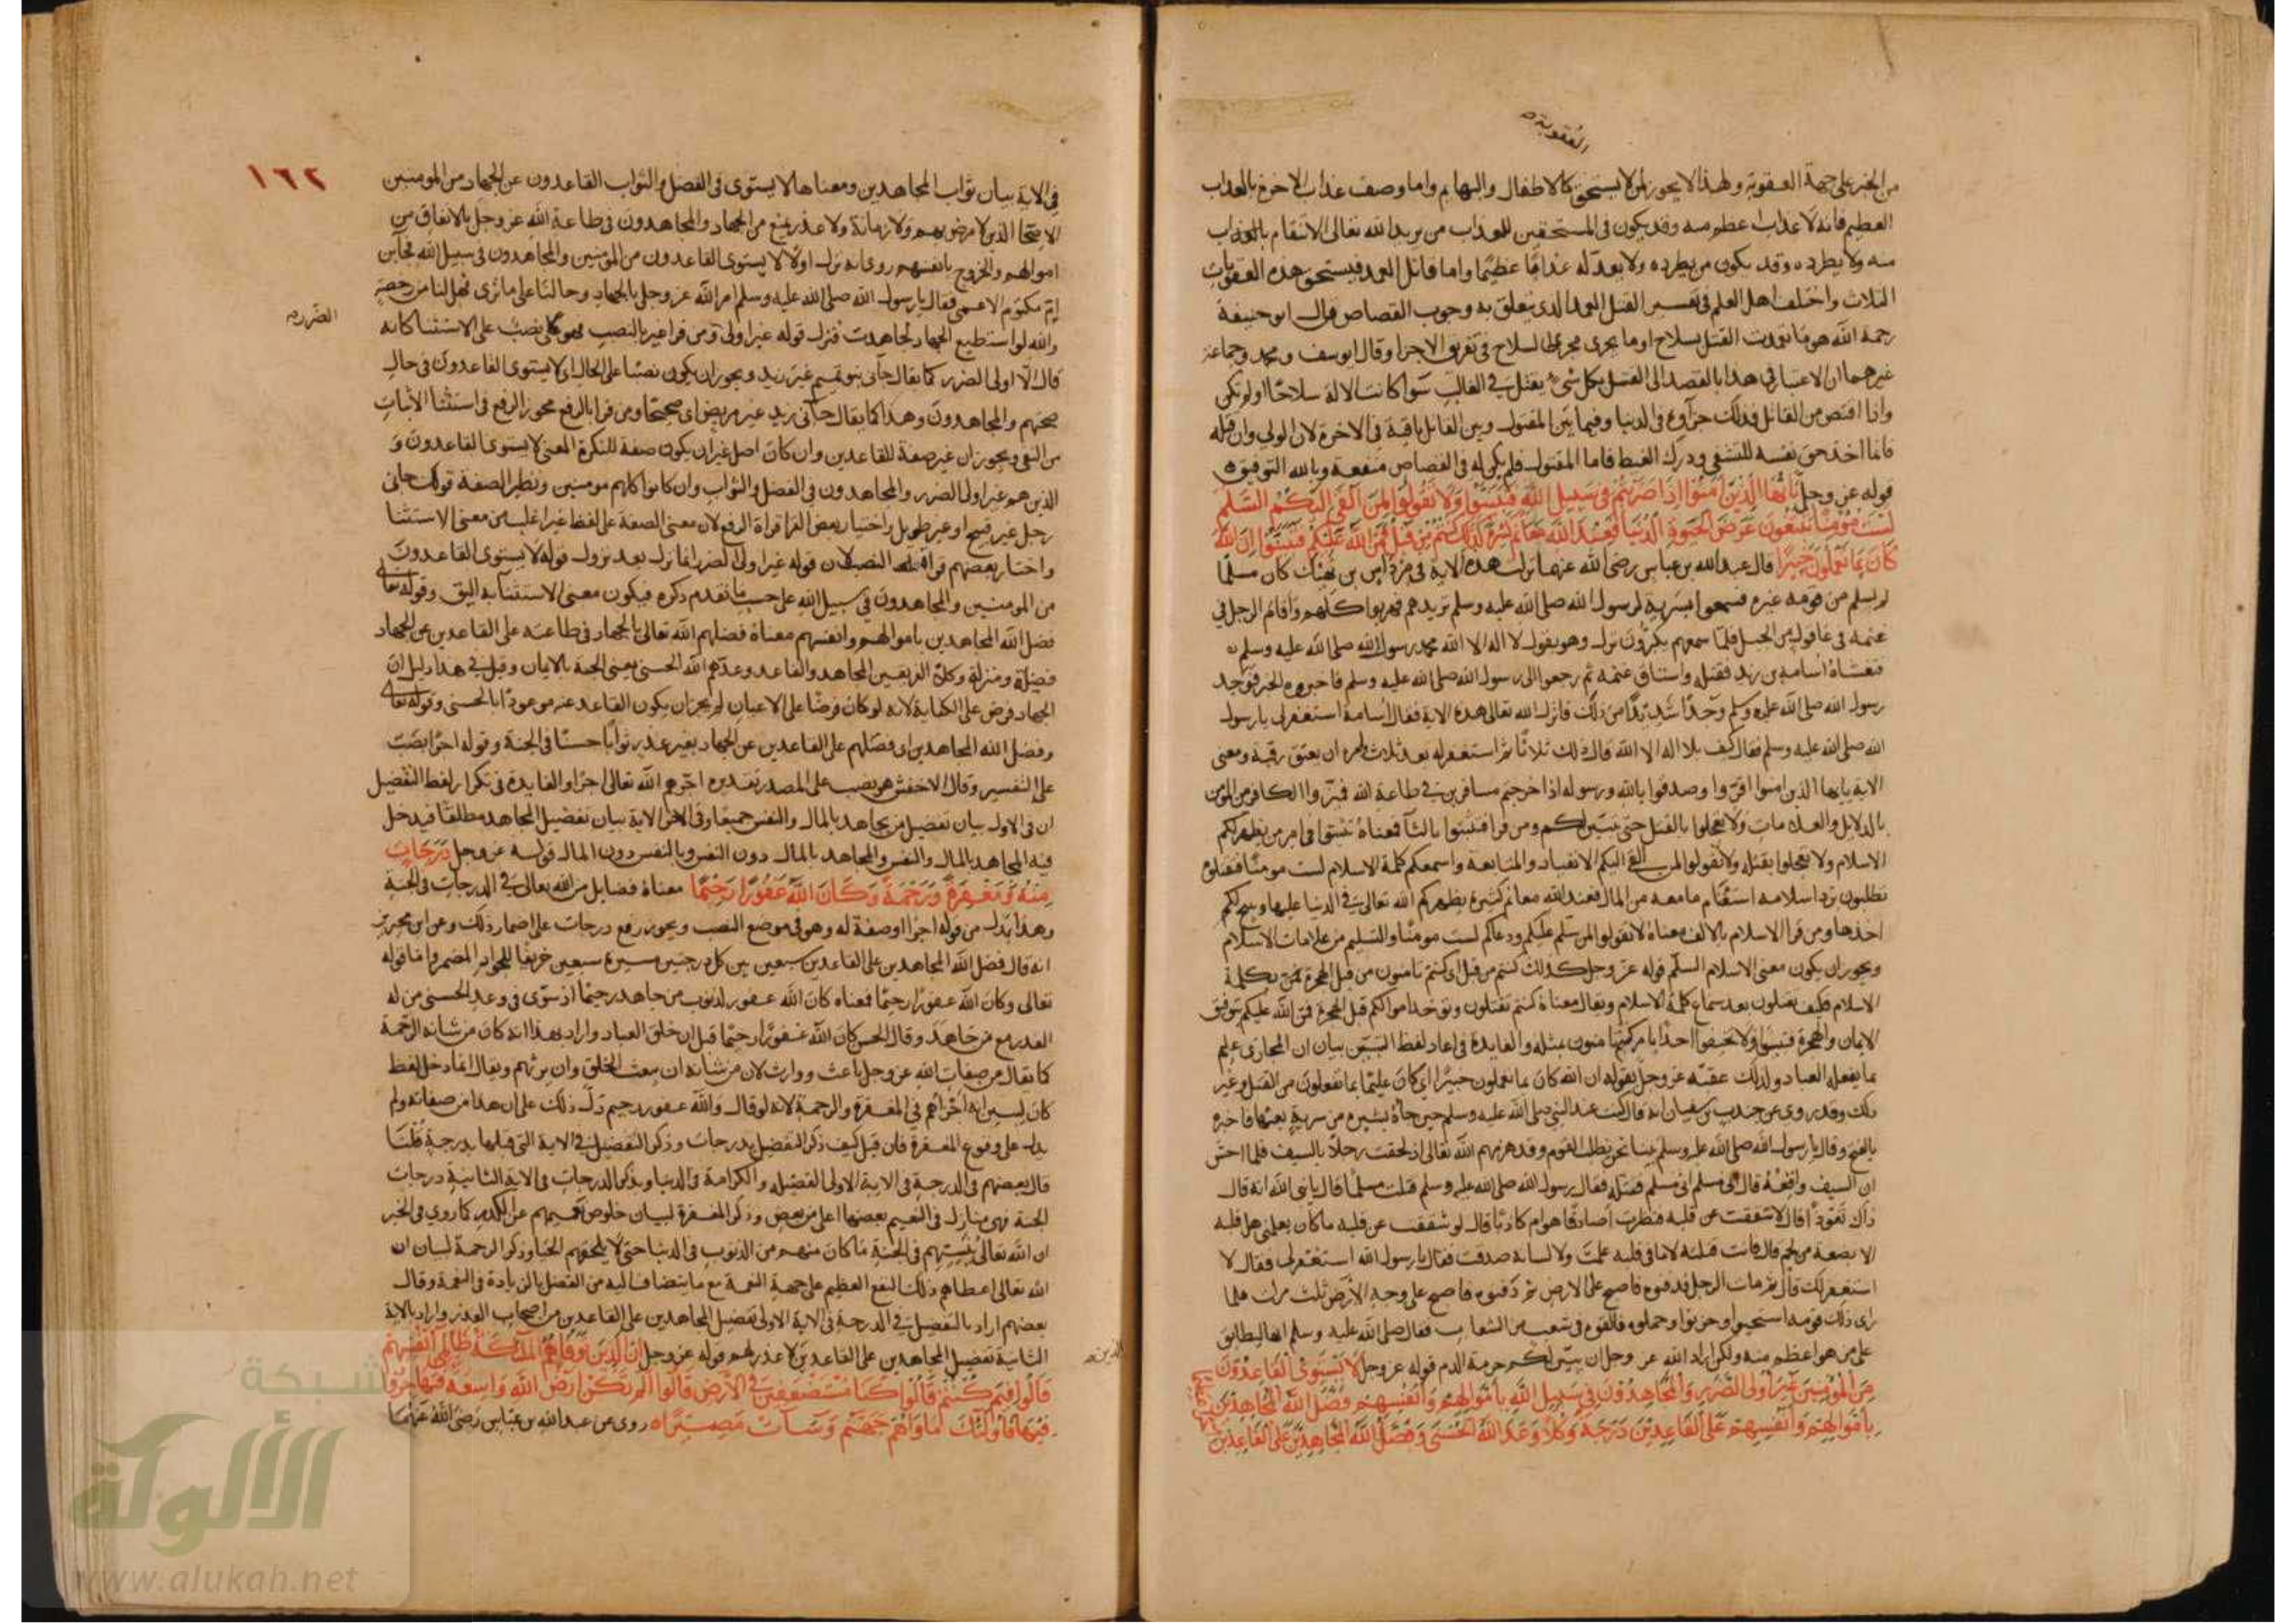 العقوبة
من الخبر على جهة العقوبة ولهذا لا يجوز لمن لا يستحق كالاطفال والبهايم واما وصف عذاب الاخرة بالعذاب
العظيم فانه لا عذاب اعظم منه وقد يكون في المستحقين للعذاب من يريد الله تعالى الانتقام بالعذاب
منه ولا يطرده وقد يكون من يطرده ولا يعد له عذابا عظيما واما قاتل العمد فيستحق هذه العقوبات
الثلاث واختلف اهل العلم في تفسير القتل العمد الذي يتعلق به وجوب القصاص قال ابو حنيفة
رحمة الله هو ما تعمدت القتل بسلاح او ما يجري مجرى السلاح في تفريق الاجزا وقال ابو يوسف ومحمد وجماعة
غيرهما ان الاعتبار في هذا بالقصد الى القتل بكل شيء يقتل في الغالب سوا كانت الالة سلاحا او لم تكن
واذا اقتص من القاتل فذلك جزآوه في الدنيا وفيما بين المقتول وبين القاتل باقية في الاخرة لان الولي وان قتله
فانما اخذ حق نفسه للتشفي ودرك الغيظ فاما المقتول فلم يكن له في القصاص منفعة وبالله التوفيق
قوله عز وجل يا ايها الذين آمنوا اذا ضربتم في سبيل الله فتبينوا ولا تقولوا لمن القى اليكم السلم
لست مؤمنا تبتغون عرض الحيوة الدنيا فعند الله مغانم كثيرة كذلك كنتم من قبل فمن الله عليكم فتبينوا ان الله
كان بما تعملون خبيرا قال عبد الله بن عباس رضي الله عنهما نزلت هذه الاية في مرداس بن نهيك كان مسلما
لم يسلم من قومه غيره فسمعوا بسرية لرسول الله صلى الله عليه وسلم تريدهم فهربوا كلهم واقام الرجل في
غنمه في عاقول من الجبل فلما سمعهم يكبرون نزل وهو يقول لا اله الا الله محمد رسول الله صلى الله عليه وسلم
فغشاه اسامة بن زيد فقتله واستاق غنمه ثم رجعوا الى رسول الله صلى الله عليه وسلم فاخبروه الخبر فوجد
رسول الله صلى الله عليه وسلم وجدا شديدا من ذلك فانزل الله تعالى هذه الاية فقال اسامة استغفر لي يا رسول
الله صلى الله عليه وسلم فقال كيف بلا اله الا الله قال ذلك ثلاثا ثم استغفر له بعد ثلاث وامره ان يعتق رقبة ومعنى
الاية يايها الذين امنوا اقروا وصدقوا بالله ورسوله اذا خرجتم مسافرين في طاعة الله فميزوا الكافر من المؤمن
بالدلايل والعلامات ولا تعجلوا بالقتل حتى يتبين لكم ومن قرا فتثبتوا بالثآ فمعناه تثبتوا في امر من يظهر لكم
الاسلام ولا تعجلوا بقتله ولا تقولوا لمن القى اليكم الانقياد والمتابعة واسمعكم كلمة الاسلام لست مومنا فتقتلوه
تطلبون برد اسلامه استغنام ما معه من المال فعند الله مغانم كثيرة يظهركم الله تعالى في الدنيا عليها ويبيح لكم
اخذها ومن قرا الاسلام بالالف معناه لا تقولوا لمن سلم عليكم ودعاكم لست مومنا والتسليم من علامات الاسلام
ويجوز ان يكون معنى الاسلام السلم قوله عز وجل كذلك كنتم من قبل اي كنتم تامنون من قبل الهجرة بكلمة
الاسلام فكيف تقتلون بعد سماع كلمة الاسلام ويقال معناه كنتم تقتلون وتوخذ اموالكم قبل الهجرة فمن الله عليكم بتوفيق
الايمان والهجرة فتبينوا ولا تخيفوا احدا بامر كنتم تامنون بمثله والفايدة في اعادة لفظ التبين بيان ان المجازى عليم
بما يفعله العباد ولذلك عقبه عز وجل بقوله ان الله كان بما تعملون خبيرا اي كان عليما بما تفعلون من القتل وغير
ذلك وقد روي عن جندب بن سفيان انه قال كنت عند النبي صلى الله عليه وسلم حين جاه بشير من سرية بعثها فاخبره
بالفتح وقال يا رسول الله صلى الله عليه وسلم بينا نحن نطلب القوم وقد هزمهم الله تعالى اذ لحقت رجلا بالسيف فلما احس
ان السيف واقعه قال اني مسلم اني مسلم فقتلته فقال رسول الله صلى الله عليه وسلم قتلت مسلما قال يا نبي الله انه قال
ذاك تعوذا قال لا شققت عن قلبه فنظرت اصادقا هو ام كاذبا قال لو شققت عن قلبه ما كان يعلمني هل قلبه
الا بضعة من لحم قال فانت قتلته لا ما في قلبه علمت ولا لسانه صدقت فقال يا رسول الله استغفر لي فقال لا
استغفر لك قال ثم مات الرجل فدفنوه فاصبح على الارض ثم دفنوه فاصبح على وجه الارض ثلث مرات فلما
راى ذلك قومه استحيوا وحزنوا وحملوه فالقوه في شعب من الشعاب فقال صلى الله عليه وسلم انها لتطابق
على من هو اعظم منه ولكن اراد الله عز وجل ان يبين لكم حرمة الدم قوله عز وجل لا يستوي القاعدون
من المؤمنين غير اولي الضرر والمجاهدون في سبيل الله بأموالهم وأنفسهم فضل الله المجاهدين
بأموالهم وأنفسهم على القاعدين درجة وكلا وعد الله الحسنى وفضل الله المجاهدين على القاعدين
١٦٢
في الاية بيان ثواب المجاهدين ومعناها لا يستوي في الفضل والثواب القاعدون عن الجهاد من المومنين
الاصحا الذين لا مرض بهم ولا زمانة ولا عذر يمنع من الجهاد والمجاهدون في طاعة الله عز وجل بالانفاق من
اموالهم والخروج بانفسهم روي انه نزل اولا لا يستوي القاعدون من المؤمنين والمجاهدون في سبيل الله فجآ ابن
ام مكتوم الاعمى فقال يا رسول الله صلى الله عليه وسلم امر الله عز وجل بالجهاد وحالنا على ما ترى فهل لنا من رخصة
والله لو استطيع الجهاد لجاهدت فنزل قوله غير اولي ومن قرا غير بالنصب فهو نصب على الاستثنا كانه
الضرر
قال الا اولي الضرر كما يقال جآني بنو تميم غير زيد ويجوز ان يكون نصبا على الحال اي لا يستوي القاعدون في حال
صحتهم والمجاهدون وهذا كما يقال جآني زيد غير مريض اي صحيحا ومن قرا بالرفع فيجوز الرفع في استثنا الاثبات
من النفي ويجوز ان غير صفة للقاعدين وان كان اصل غير ان يكون صفة للنكرة المعنى لا يستوي القاعدون و
الذين هم غير اولي الضرر والمجاهدون في الفضل والثواب وان كانوا كلهم مومنين ونظير الصفة قولك جاني
رجل غير قبيح او غير طويل واختيار بعض القرا قراة الرفع لان معنى الصفة على لفظ غير اغلب من معنى الاستثنا
واختار بعضهم قراة النصب لان قوله غير اولي الضرر انما نزل بعد نزول قوله لا يستوي القاعدون
من المومنين والمجاهدون في سبيل الله على حسب ما تقدم ذكره فيكون معنى الاستثنا به اليق وقوله تعالى
فضل الله المجاهدين باموالهم وانفسهم معناه فضلهم الله تعالى بالجهاد في طاعته على القاعدين عن الجهاد
فضيلة ومنزلة وكلا الفريقين المجاهد والقاعد وعدهم الله الحسنى يعني الجنة بالايمان وقيل في هذا دليل ان
الجهاد فرض على الكفاية لانه لو كان فرضا على الاعيان لم يجز ان يكون القاعد عنه موعودا بالحسنى وقوله تعالى
وفضل الله المجاهدين اي فضلهم على القاعدين عن الجهاد بغير عذر ثوابا حسنا في الجنة وقوله اجرا نصب
على التفسير وقال الاخفش هو نصب على المصدر تقديره اجرهم الله تعالى اجرا والفايدة في تكرار لفظ التفضيل
ان في الاول بيان تفضيل من يجاهد بالمال والنفس جميعا وفي اخر الاية بيان تفضيل المجاهد مطلقا فيدخل
فيه المجاهد بالمال والنفس والمجاهد بالمال دون النفس وبالنفس دون المال قوله عز وجل درجات
منه ومغفرة ورحمة وكان الله غفورا رحيما معناه فضايل من الله تعالى في الدرجات في الجنة
وهذا بدل من قوله اجرا او صفة له وهو في موضع النصب ويجوز رفع درجات على اضمار ذلك وعن ابن محيريز
انه قال فضل الله المجاهدين على القاعدين سبعين بين كل درجتين مسيرة سبعين خريفا للجواد المضمر واما قوله
تعالى وكان الله غفورا رحيما فمعناه كان الله غفور لذنوب من جاهد رحيما اذ سوى في وعد الحسنى من له
العذر مع من جاهد وقال الحسن كان الله غفورا رحيما قبل ان خلق العباد واراد بهذا انه كان من شانه الرحمة
كما يقال من صفات الله عز وجل باعث ووارث لان من شانه ان يبعث الخلق وان يرثهم ويقال انما دخل لفظ
كان ليبين انه اجراهم في المغفرة والرحمة لانه لو قال والله غفور رحيم دل ذلك على ان هذا من صفاته ولم
يدل على وقوع المغفرة فان قيل كيف ذكر التفضيل بدرجات وذكر التفضيل في الاية التي قبلها بدرجة قلنا
قال بعضهم في الدرجة في الاية الاولى الفضيلة والكرامة في الدنيا وبذكر الدرجات في الاية الثانية درجات
الجنة فهي منازل في النعيم بعضها اعلى من بعض وذكر المغفرة لبيان خلوص نعيمهم عن الكدر كما روي في الخبر
ان الله تعالى ينسيهم في الجنة ما كان منهم من الذنوب في الدنيا حتى لا يلحقهم الحيا وذكر الرحمة لبيان ان
الله تعالى اعطاهم ذلك النفع العظيم على جهة النعمة مع ما يتضاف اليه من الفضل بالزيادة في النعمة وقال
بعضهم اراد بالتفضيل في الدرجة في الاية الاولى تفضيل المجاهدين على القاعدين من اصحاب العذر واراد بالاية
الثانية تفضيل المجاهدين على القاعدين لا عذر لهم قوله عز وجل ان الذين توفاهم الملائكة ظالمي انفسهم
الذين
قالوا فيم كنتم قالوا كنا مستضعفين في الارض قالوا الم تكن ارض الله واسعة فتهاجروا
فيها فاولئك مأواهم جهنم وسآءت مصيرا روي عن عبد الله بن عباس رضي الله عنهما
شبكة
الألوكة
www.alukah.net